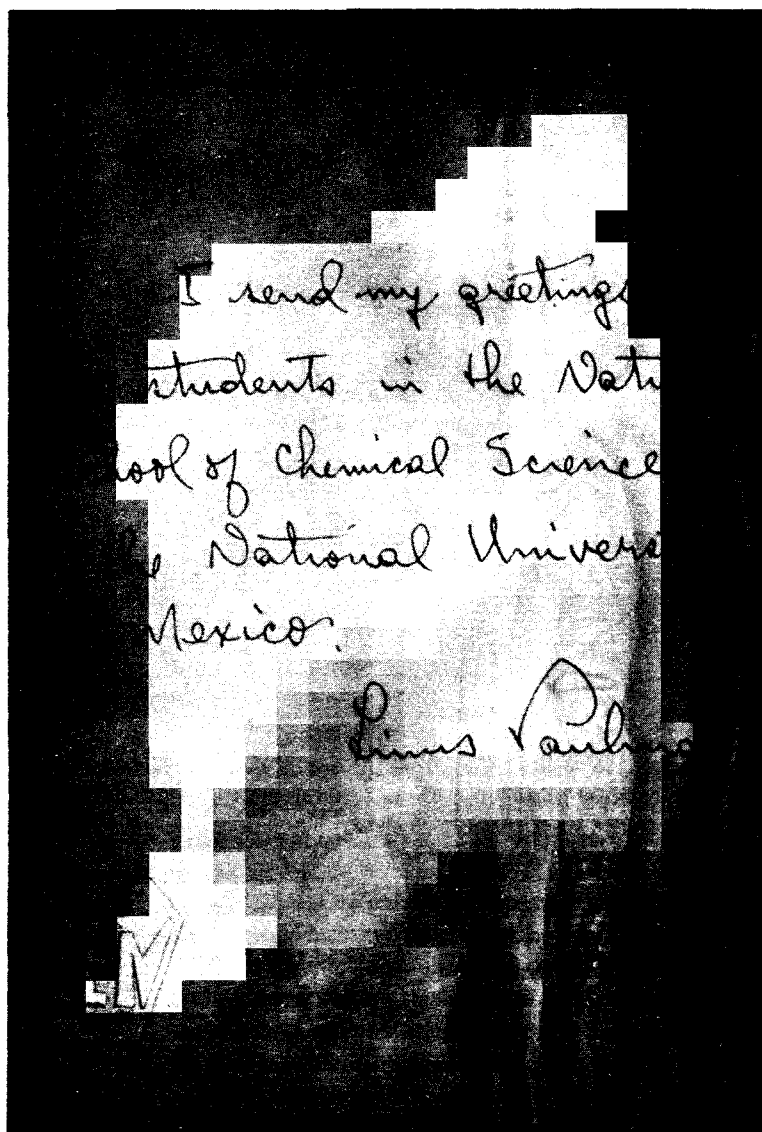 I send my greetings
students in the Nati
ool of Chemical Science
National Universi
Mexico.
Linus Pauling